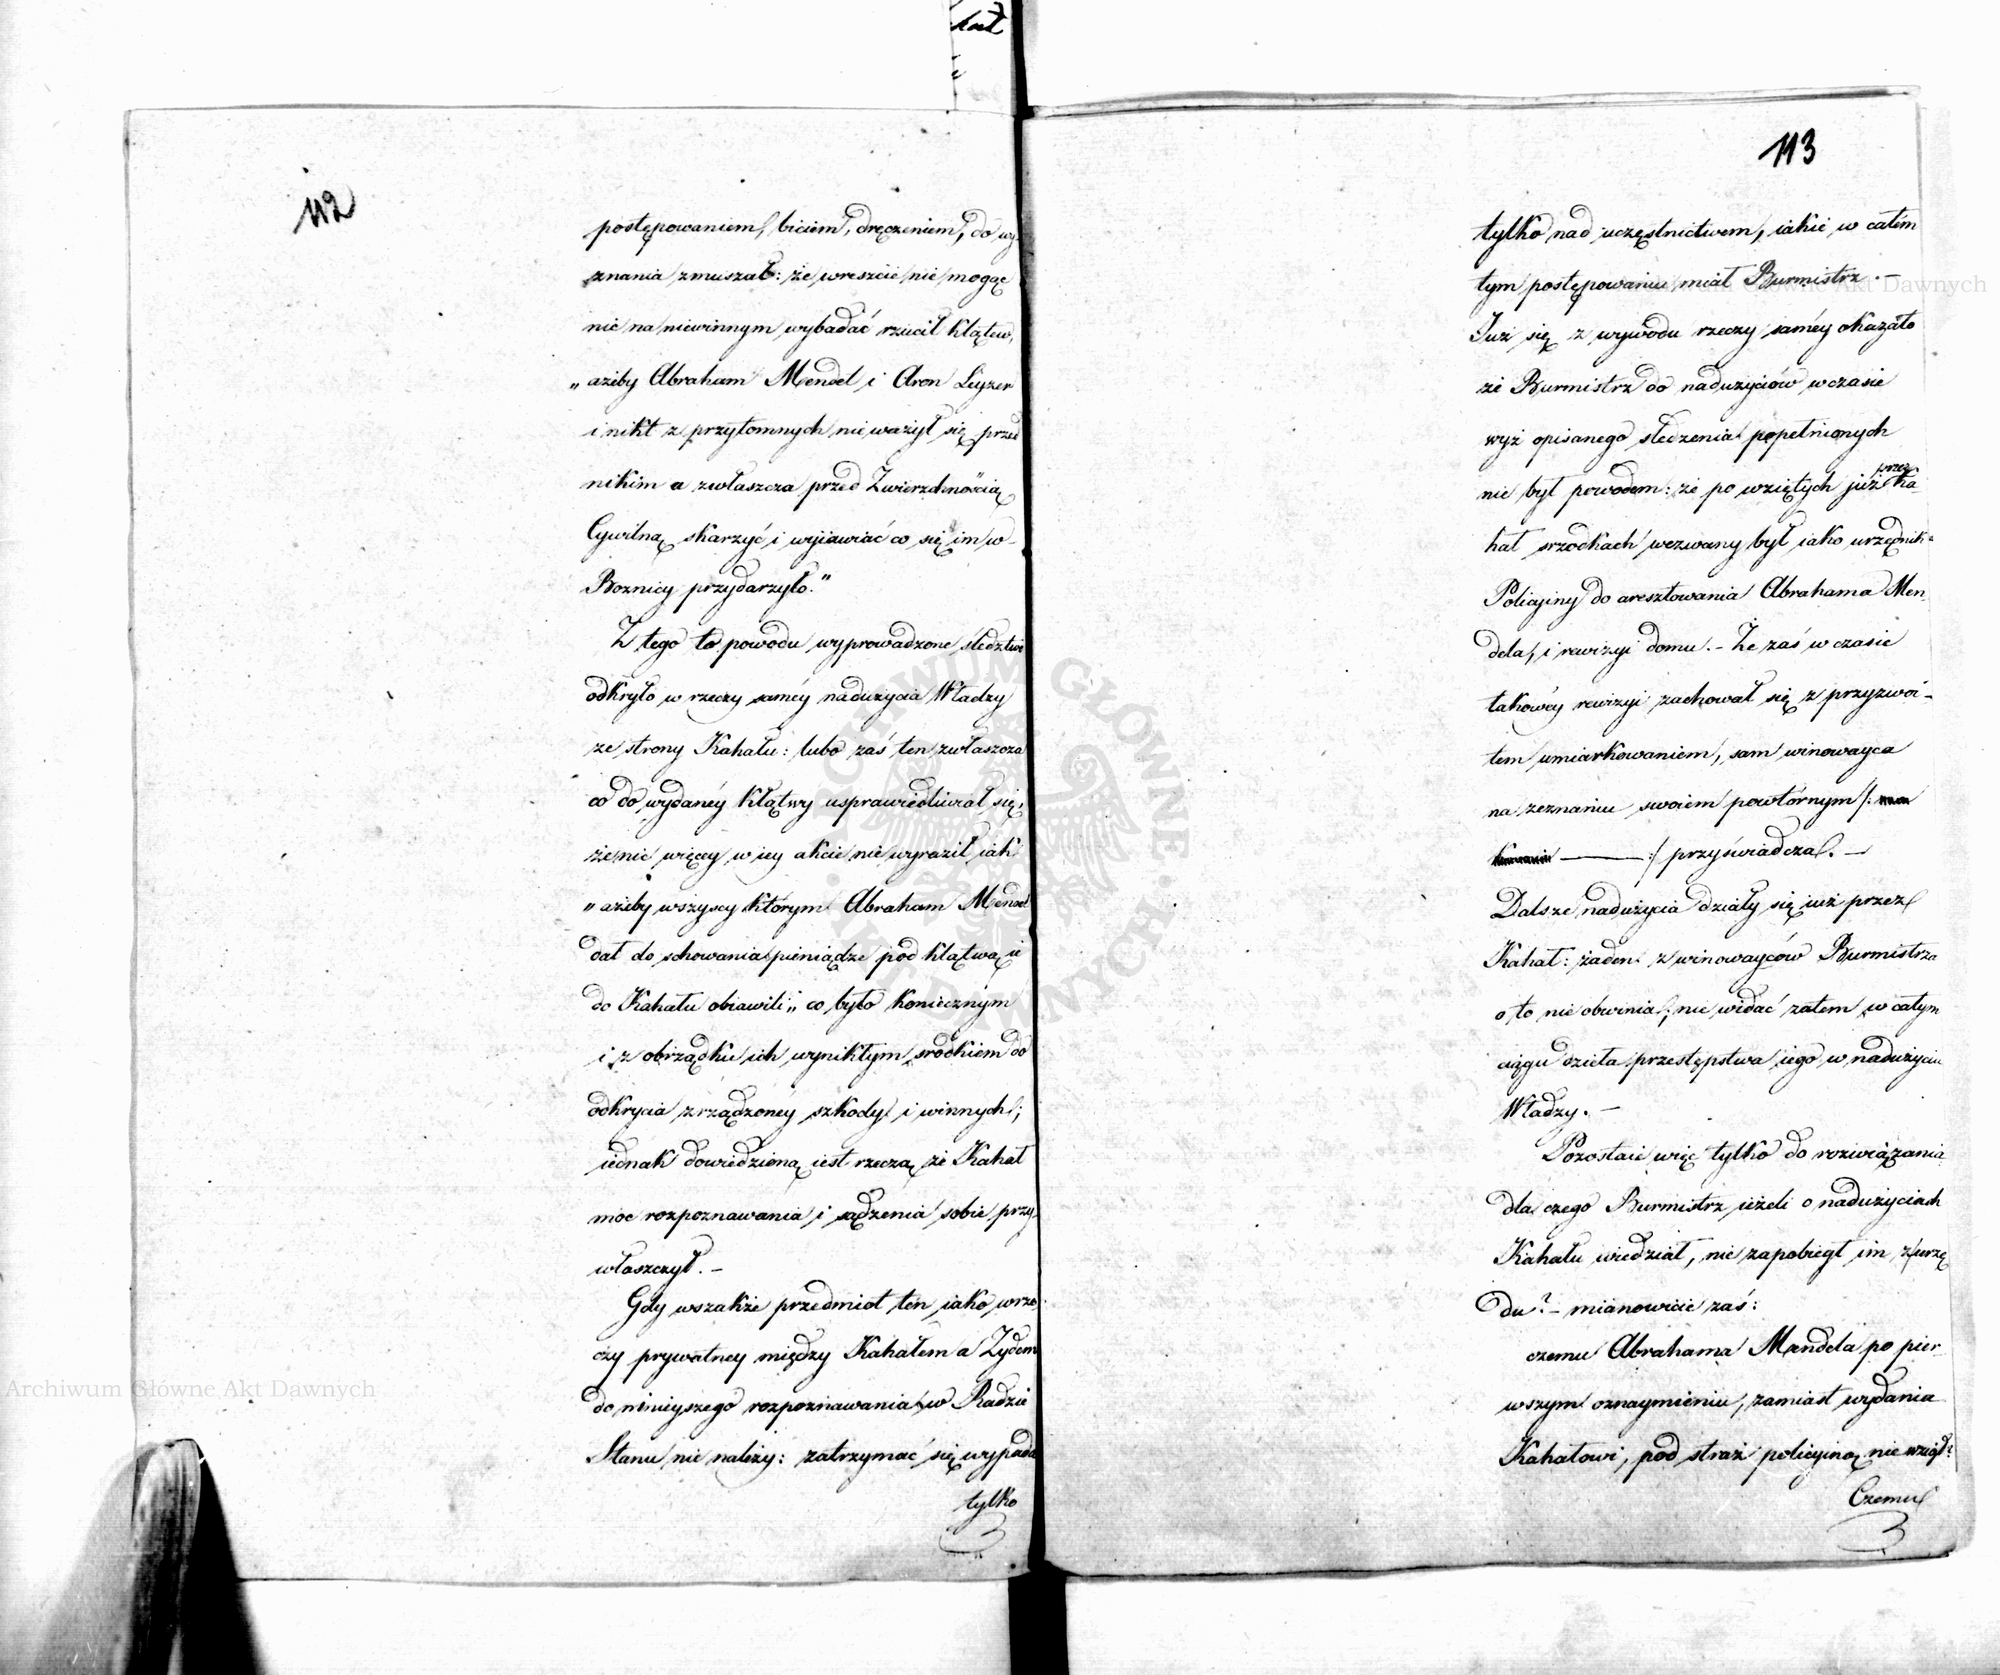 112
postępowaniem, biciem, dręczeniem, do wy-
znania zmuszał: że wreszcie nie mogąc
nic na niewinnym wybadać rzucił klątew,
„ażeby Abraham Mendel i Aron Leyzer
i nikt z przytomnych nie ważył się przed
nikim a zwłaszcza przed Zwierzchnością
Cywilną skarżyć i wyiawiać co się im w
Boznicy przydarzyło."
Z tego to powodu wyprowadzone sledztwo
odkryło w rzeczy saméy nadużycia Władzy
ze strony Kahału: lubo zaś ten zwłaszcza
co do wydanéy klątwy usprawiedliwiał się,
że nic więcey w iey akcie nie wyraził iak
„ażeby wszyscy którym Abraham Mendel
dał do schowania pieniądze pod klątwą ie
do Kahału obiawili„ co było koniecznym
i z obrządku ich wynikłym srodkiem do
odkrycia zrządzonéy szkody i winnych;
iednak dowiedzioną iest rzeczą że Kahał
moc rozpoznawania i sądzenia sobie przy-
właszczył. –
Gdy wszakże przedmiot ten iako w rze-
czy prywatney między Kahałem a Żydem
do ninieyszego rozpoznawania w Radzie
Stanu nie należy: zatrzymać się wypada
tylko
113
tylko nad uczęstnictwem, iakie w całém
tym postępowaniu miał Burmistrz. –
Iuż się z wywodu rzeczy saméy okazało
że Burmistrz do nadużyciów w czasie
wyż opisanego sledzenia popełnionych
nie był powodem: że po wziętych już przez Ka-
hał srzodkach wezwany był iako urzędnik
Policyiny do aresztowania Abrahama Men-
dela, i rewizyi domu. – Że zaś w czasie
takowéy rewizyi zachował się z przyzwoi-
tem umiarkowaniem, sam winowayca
na zeznaniu swoiem powtórnym /:
:/ przyświadcza. –
Dalsze nadużycia działy się iuż przez
Kahał: żaden z winowayców Burmistrza
o to nie obwinia; nie widać zatem w całym
ciągu dzieła przestępstwa iego w nadużyciu
Władzy. –
Pozostaie więc tylko do rozwiązania
dla czego Burmistrz ieżeli o nadużyciach
Kahału wiedział, nie zapobiegł im z urzę
du? – mianowicie zaś:
czemu Abrahama Mendela po pier-
wszym oznaymieniu, zamiast wydania
Kahałowi, pod straż policyiną nie wziął?
Czemu
Archiwum Główne Akt Dawnych